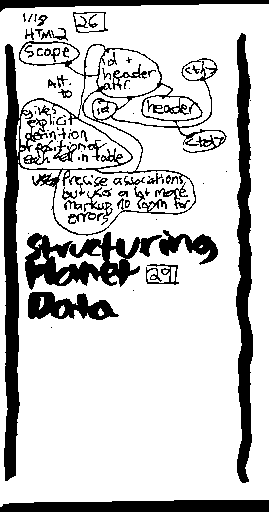 1/18 26
HTML2
Scope
id +
header
attr.
Alt.
to
id
header
<th>
<td>
gives
explicit
definition
of position of
each cell in table
uses
Precise associations
but uses a lot more
markup no room for
errors
Structuring
Planet 29
Data